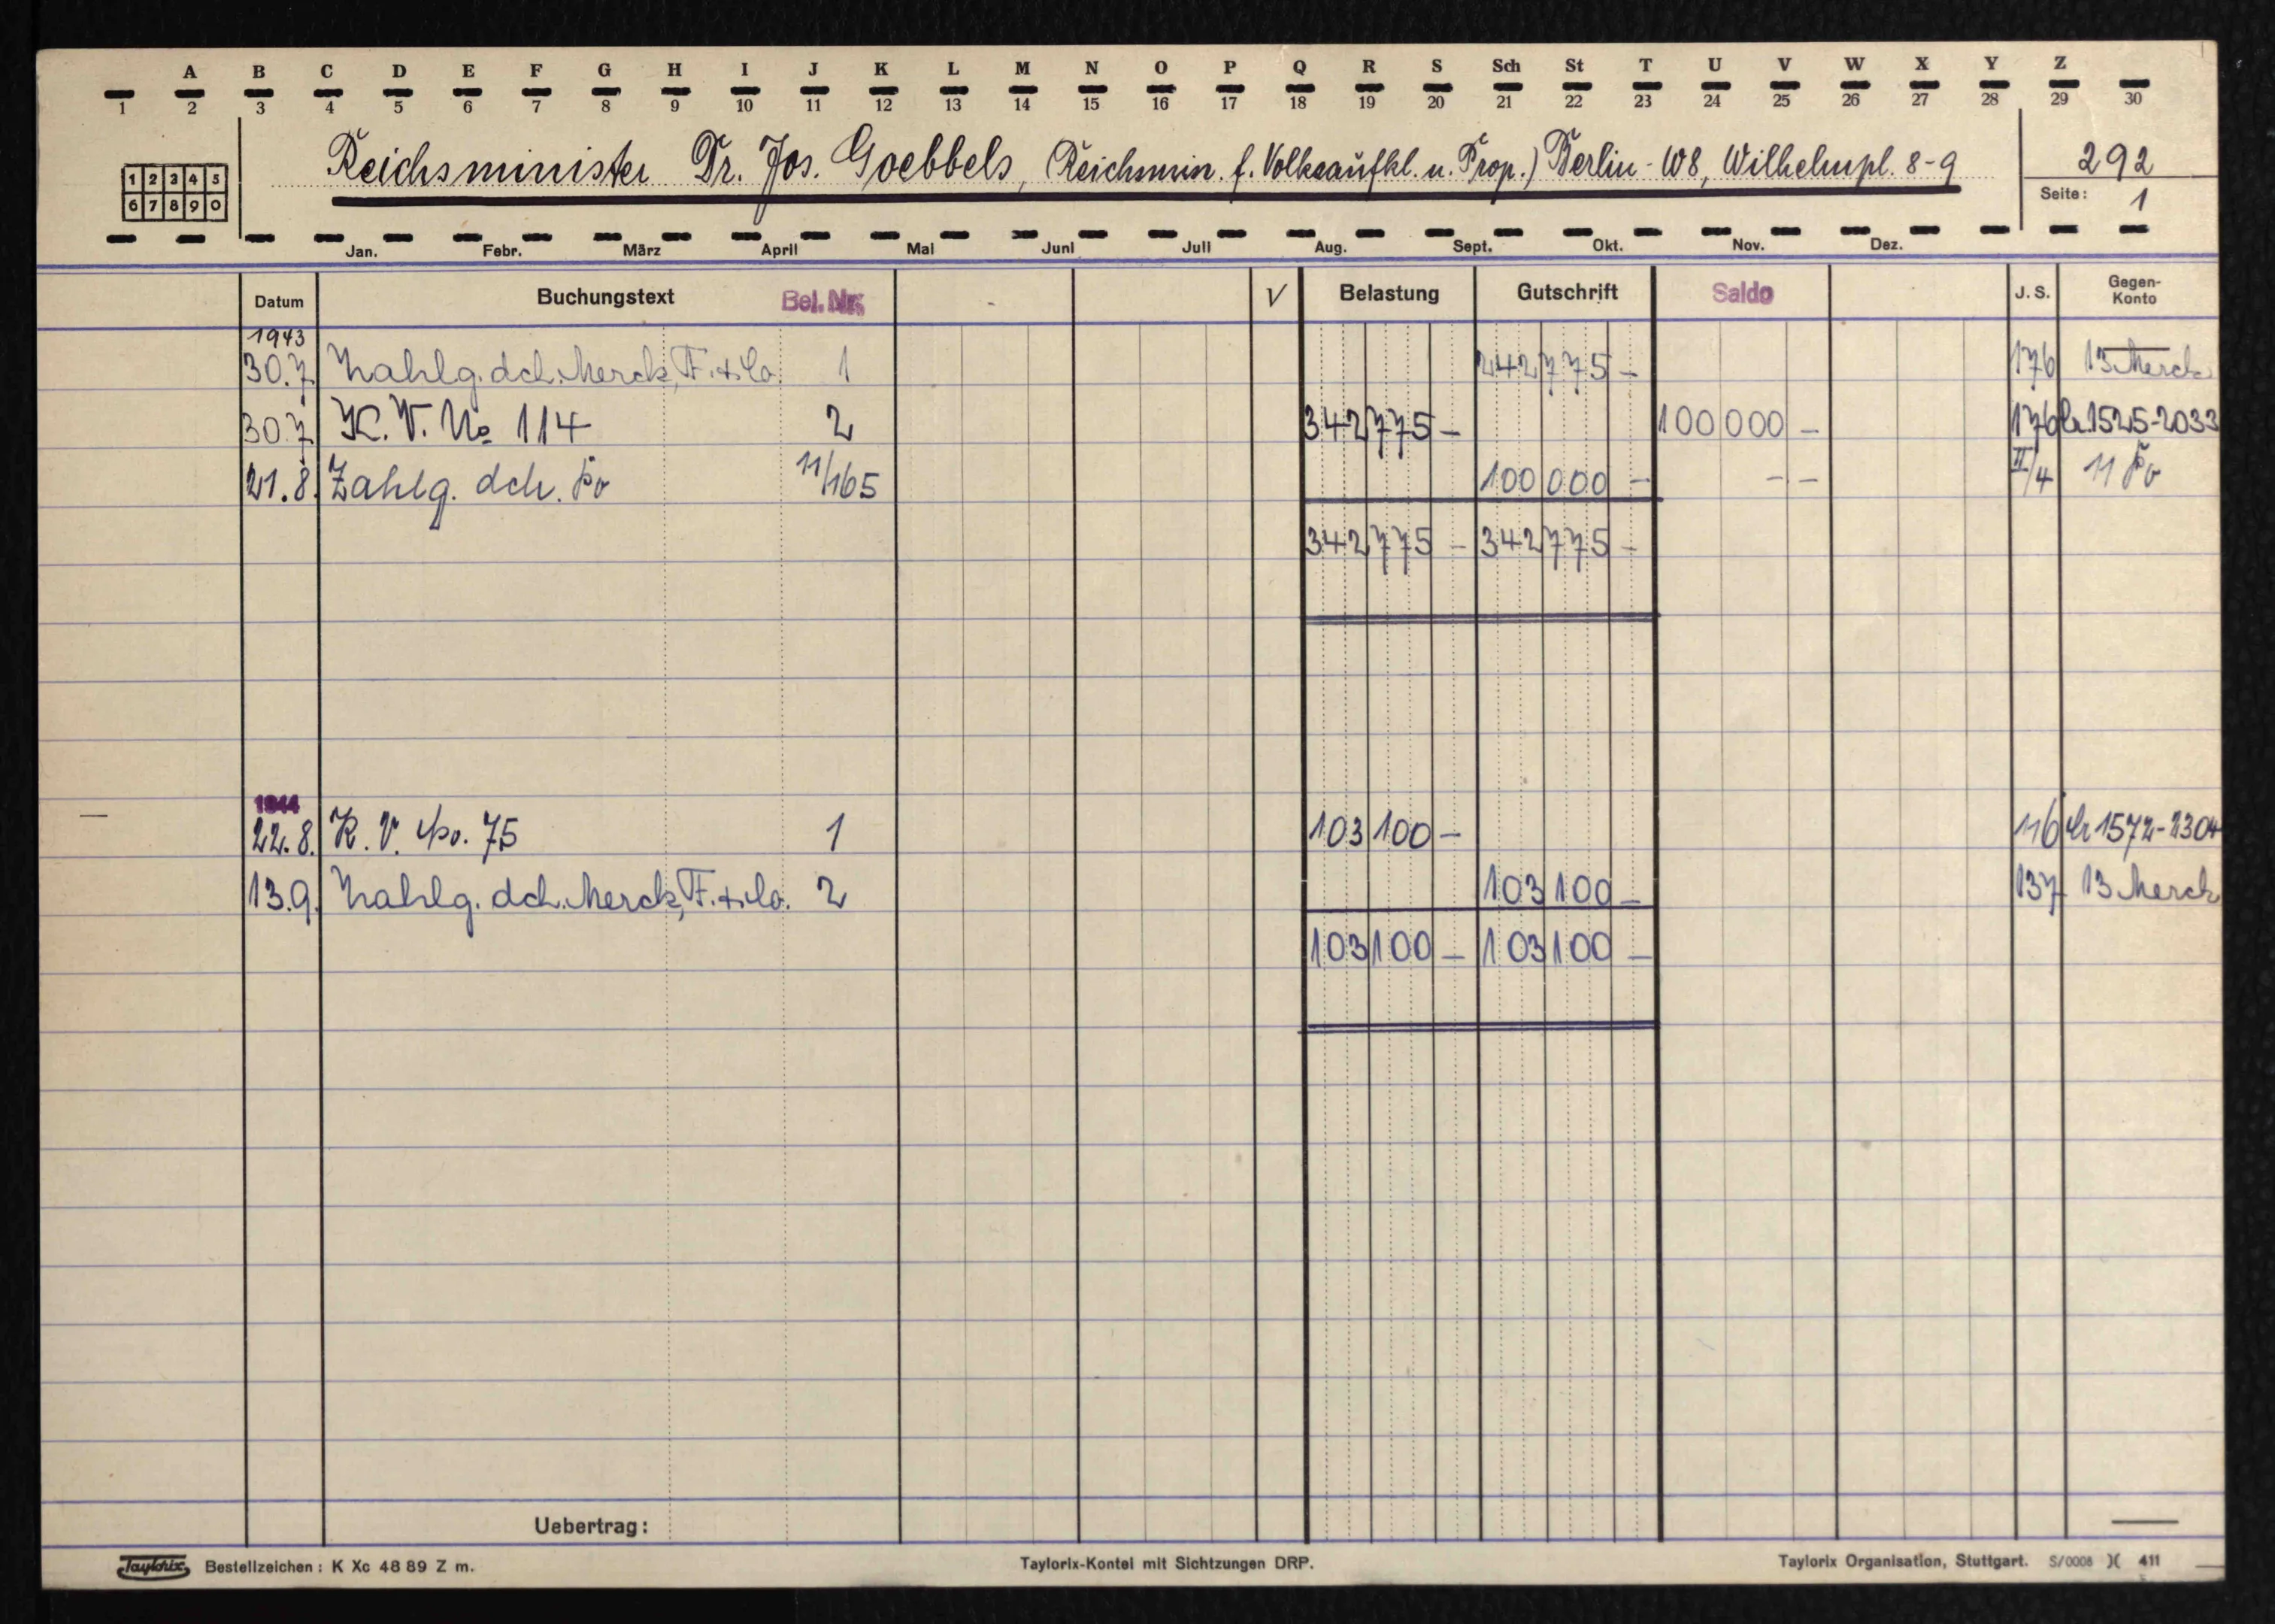 A B C D E F G H I J K L M N O P Q R S Sch St T U V W X Y Z
1 2 3 4 5 6 7 8 9 10 11 12 13 14 15 16 17 18 19 20 21 22 23 24 25 26 27 28 29 30
1 2 3 4 5
6 7 8 9 0
Reichsminister Dr. Jos. Goebbels, (Reichsmin. f. Volksaufkl. u. Prop.) Berlin-W8, Wilhelmpl. 8-9
292
Seite: 1
Jan. Febr. März April Mai Juni Juli Aug. Sept. Okt. Nov. Dez.
Datum Buchungstext Bel. Nr. V Belastung Gutschrift Saldo J. S. Gegen-Konto
1943
30.7. Zahlg. dch. Merck, F. & Co. 1 242 775 - 176 13 Merck
30.7. K. V. No 114 2 342 775 - 100 000 - 176 1525-2033
21.8. Zahlg. dch. Po 11/165 100 000 - - - II/4 11 Po
342 775 - 342 775 -
1944
22.8. K. V. No. 75 1 103 100 - 116 1572-2304
13.9. Zahlg. dch. Merck, F. & Co. 2 103 100 - 137 13 Merck
103 100 - 103 100 -
Uebertrag:
Taylorix Bestellzeichen: K Xc 48 89 Z m.
Taylorix-Kontei mit Sichtzungen DRP.
Taylorix Organisation, Stuttgart. S/0008 )( 411